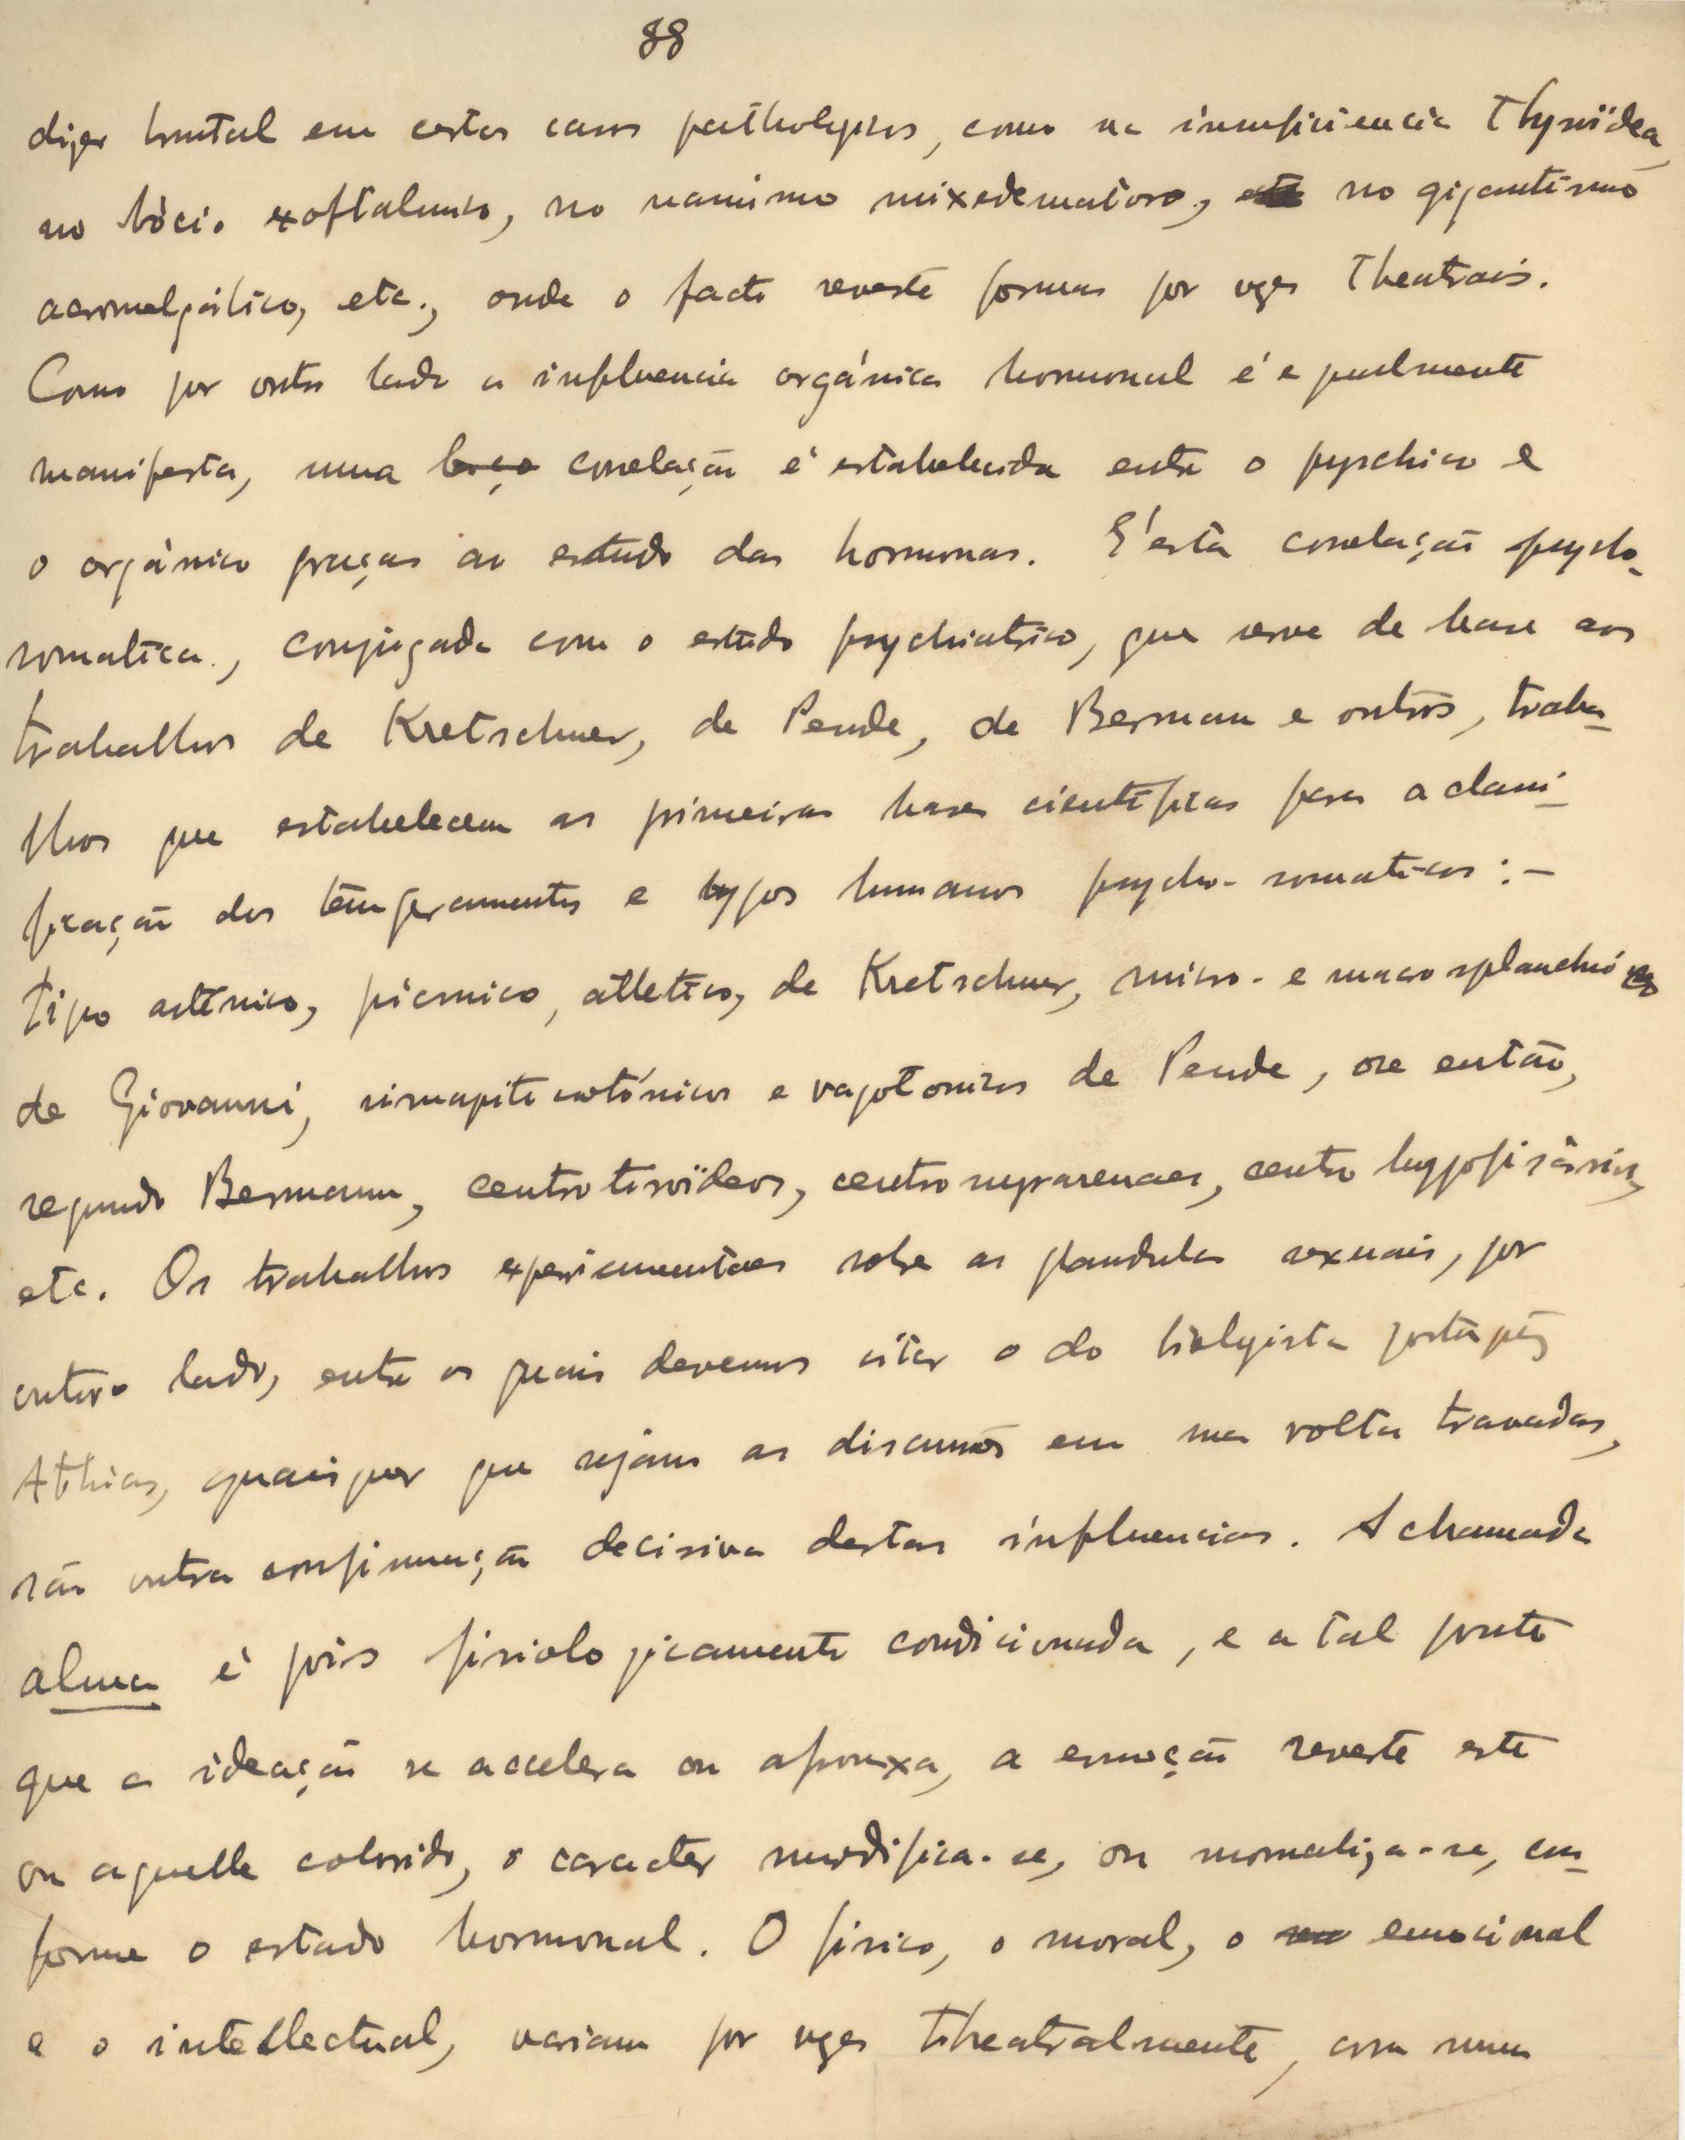 88
dizer brutal em certos casos pathologicos, como na insuficiencia thyroïdea,
no bócio exoftalmico, no nanismo mixedematoso, no gigantismo
acromegálico, etc., onde o facto reveste formas por vezes theatrais.
Como por outro lado a influencia orgánica hormonal é egualmente
manifesta, uma correlação é estabelecida entre o psychico e
o orgánico graças ao estudo das hormonas. E' esta correlação psycho-
somatica, conjugada com o estudo psychiatrico, que serve de base aos
trabalhos de Kretschmer, de Pende, de Berman e outros, traba-
lhos que estabelecem as primeiras bases cientificas para a classi-
ficação dos temperamentos e typos humanos psycho-somaticos:-
Tipo asténico, picnico, atletico, de Kretschmer, micro- e macrosplanchnicos
de Giovanni, simpaticotónicos e vagotonicos de Pende, ou então,
segundo Bermann, centrotiroïdeos, centrosuprarenaes, centro hyppofisários,
etc. Os trabalhos experimentaes sobre as glandulas sexuais, por
outro lado, entre os quais devemos citar o do biologista português
Athias, quaisquer que sejam as discussões em sua volta travadas,
são outra confirmação decisiva destas influencias. A chamada
alma é pois fisiologicamente condicionada, e a tal ponto
que a ideação se accelera ou afrouxa, a emoção reveste este
ou aquelle colorido, o caracter modifica-se, ou normaliza-se, con-
forme o estado hormonal. O fisico, o moral, o emocional
e o intellectual, variam por vezes theatralmente, com uma